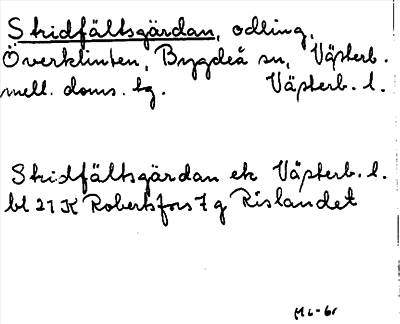 Skidfältsgärdan, odling,
Överklinten, Bygdeå sn, Västerb.
mell. doms. tg. Västerb. l.
Skidfältsgärdan ek Västerb. l.
bl 21 K Robertsfors 7 g Rislandet